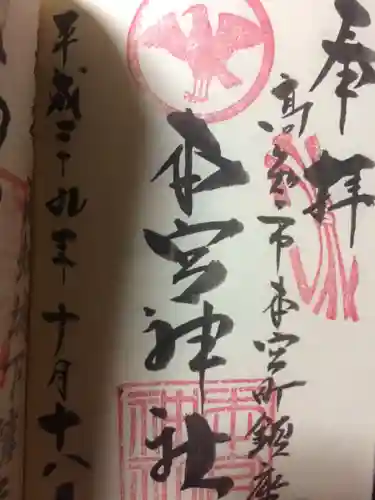 奉拝
市本宮町鎮座
本宮神社
平成二十九年十月十八日